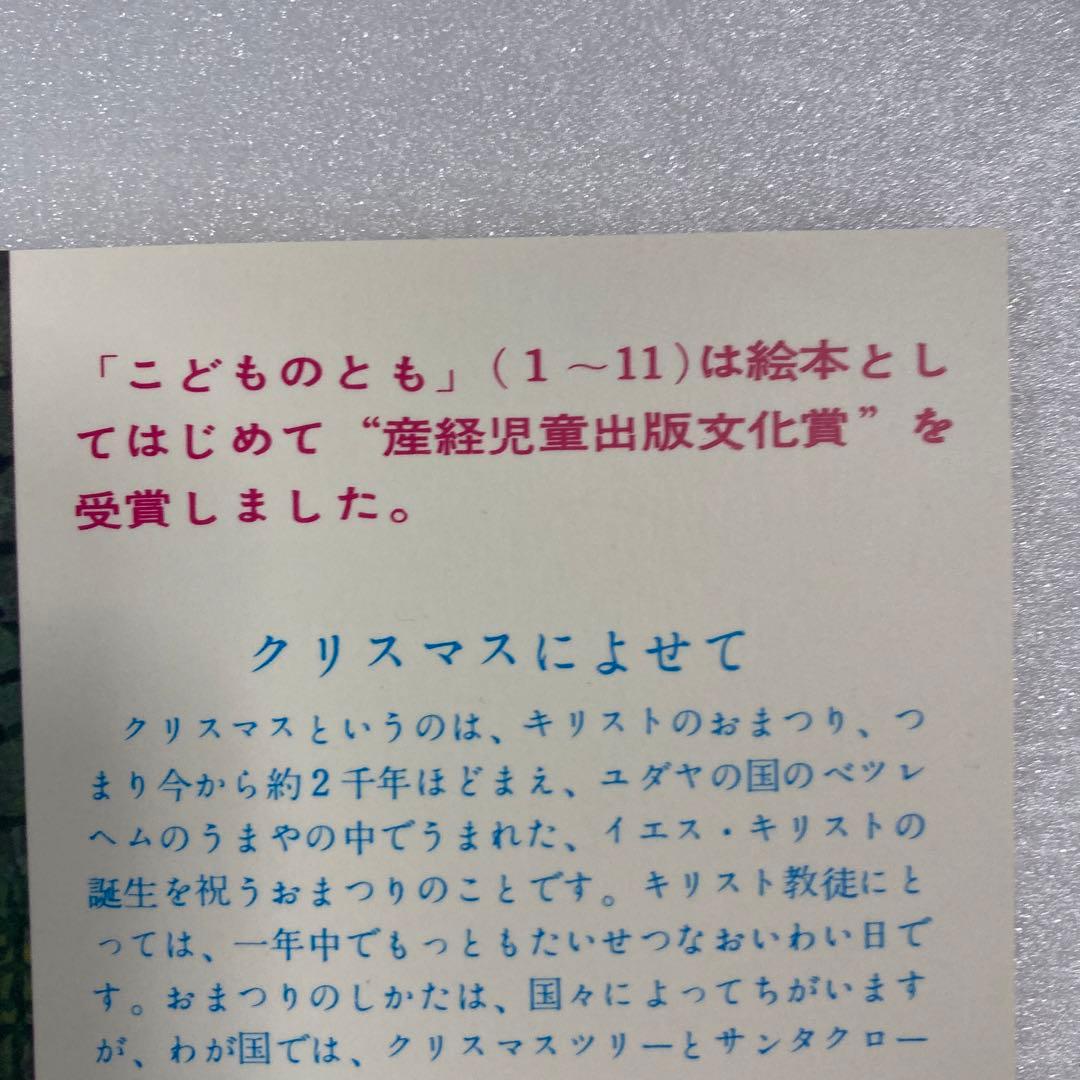 「こどものとも」(1～11)は絵本とし
てはじめて“産経児童出版文化賞”を
受賞しました。
クリスマスによせて
クリスマスというのは、キリストのおまつり、つ
まり今から約2千年ほどまえ、ユダヤの国のベツレ
ヘムのうまやの中でうまれた、イエス・キリストの
誕生を祝うおまつりのことです。キリスト教徒にと
っては、一年中でもっともたいせつなおいわい日で
す。おまつりのしかたは、国々によってちがいます
が、わが国では、クリスマスツリーとサンタクロー